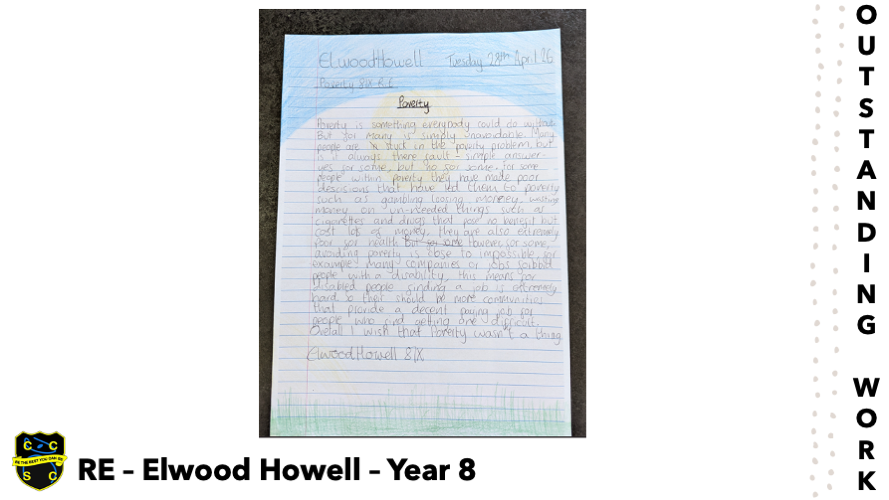 OUTSTANDING WORK
Elwood Howell Tuesday 28th April 26
Poverty 8IX R.E
Poverty
Poverty is something everybody could do without
But for many is simply unavoidable. Many
people are stuck in the poverty problem, but
is it always there fault - simple answer
yes for some, but no for some. for some
people within poverty they have made poor
descisions that have led them to poverty
such as gambling loosing money, wasting
money on un-needed things such as
cigarettes and drugs that pose no benefit but
cost lots of money, they are also extremely
poor for health But for some However, for some,
avoiding poverty is close to impossible. for
example many companies or jobs forbid
people with a disability, this means for
disabled people finding a job is extremely
hard so their should be more communities
that provide a decent paying job for
people who find getting one difficult.
Overall I wish that Poverty wasn't a thing
Elwood Howell 8IX
C C
BE THE BEST YOU CAN BE
S C
RE – Elwood Howell – Year 8